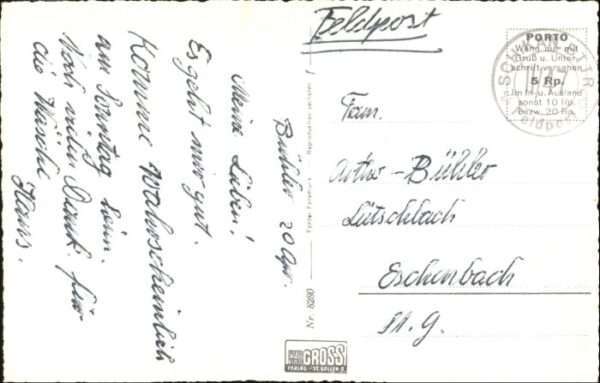 Feldpost
PORTO
Wenn nur mit
Gruß u. Unter-
schrift versehen
5 Rp.
Im In- u. Ausland
sonst 10 Rp.
bzw. 20 Rp.
Feldpost
Fam.
Arthur - Bühler
Lütschbach
Eschenbach
St. G.
Bühler 20 Apr.
Meine Lieben!
Es geht mir gut.
Komme wahrscheinlich
am Sonntag heim.
Noch vielen Dank für
die Wäsche
Hans.
Nr. 8280
GROSS
VERLAG - ST. GALLEN